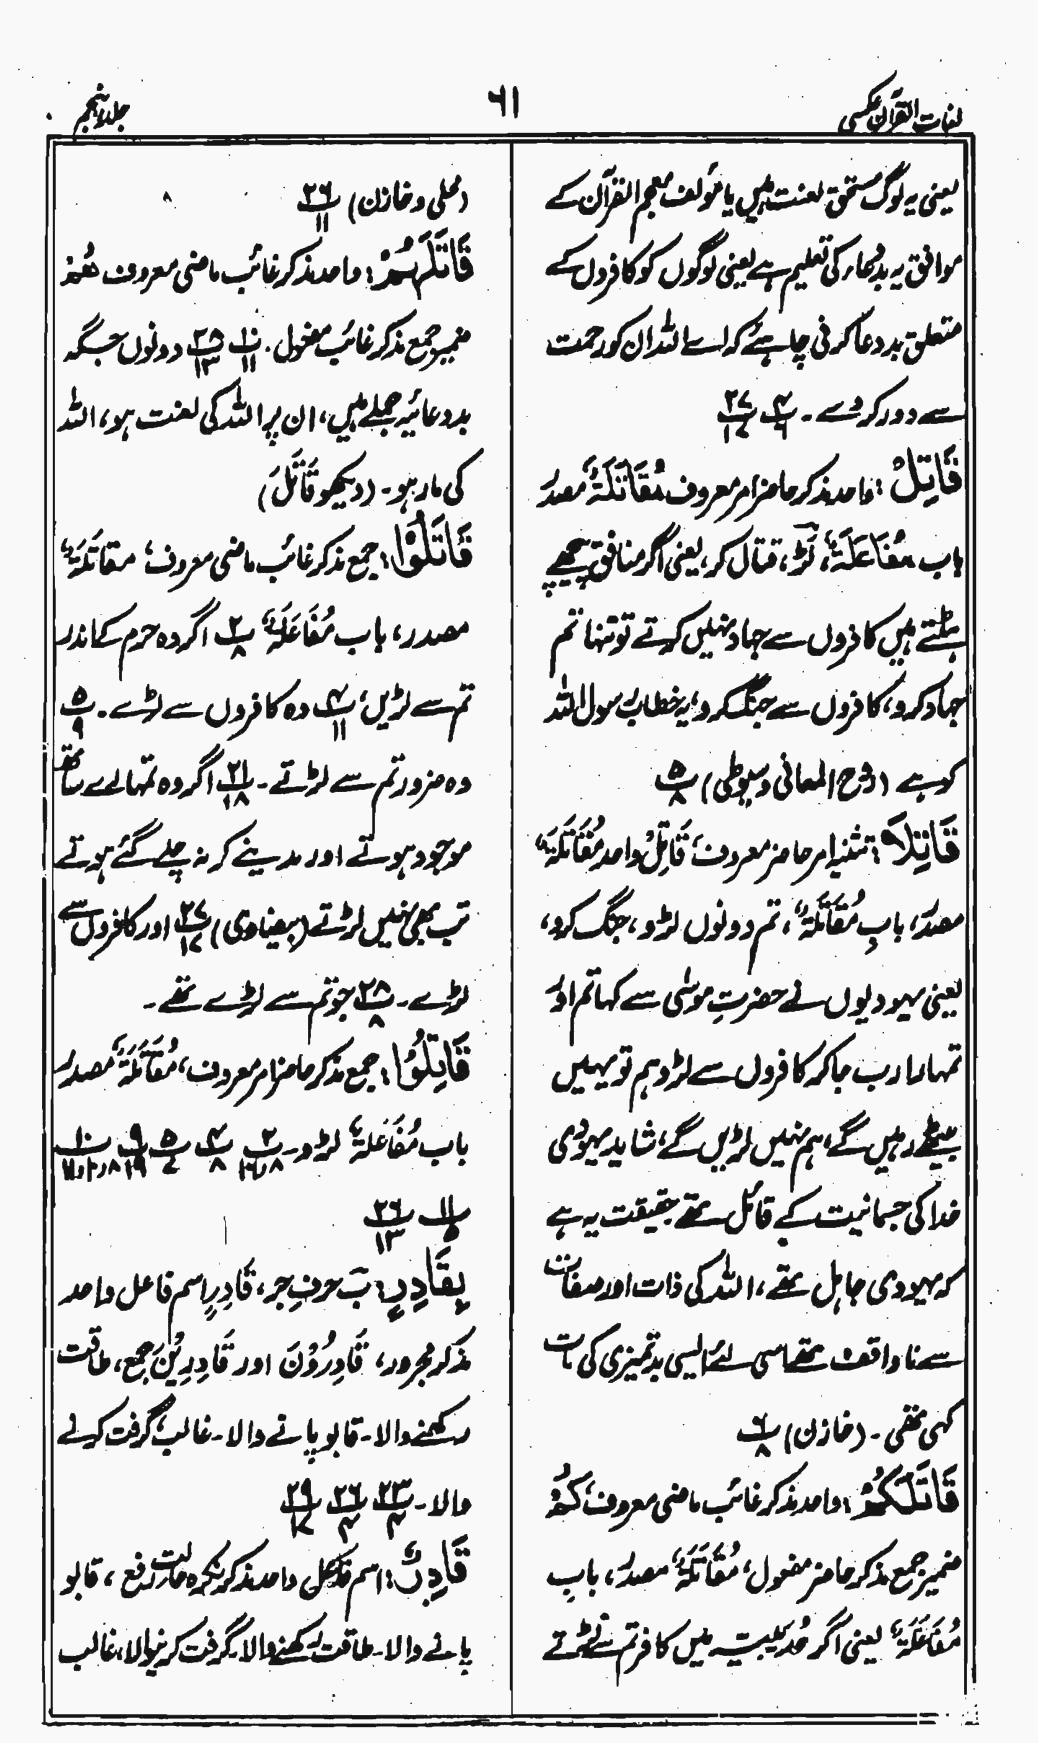 لغات القرآن عکسی
۶۱
جلد پنجم
یعنی یہ لوگ مستحق لعنت ہیں یا مؤلف معجم القرآن کے
موافق یہ بددعاء کی تعلیم ہے یعنی لوگوں کو کافروں کے
متعلق بددعا کرنی چاہئے کہ اے اللہ ان کو رحمت
سے دور کر دے۔ پ۴/۶ پ۲۸/۱۳
قَاتِلْ: واحد مذکر حاضر امر معروف مُقَاتَلَةٌ مصدر
باب مُفَاعَلَةٌ، لڑ، قتال کر، یعنی اگر منافق پیچھے
ہٹتے ہیں کافروں سے جہاد نہیں کرتے تو تنہا تم
جہاد کرو، کافروں سے جنگ کرو، یہ خطاب رسول اللہ
کو ہے (روح المعانی و سیوطی) پ۵/۸
قَاتِلَا: تثنیہ امر حاضر معروف، قَاتِلْ واحد مُقَاتَلَةٌ
مصدر، بابِ مُفَاعَلَةٌ، تم دونوں لڑو، جنگ کرو،
یعنی یہودیوں نے حضرتِ موسٰی سے کہا تم اور
تمہارا رب جا کر کافروں سے لڑو ہم تو یہیں
بیٹھے رہیں گے، ہم نہیں لڑیں گے، شاید یہودی
خدا کی جسمانیت کے قائل تھے حقیقت یہ ہے
کہ یہودی جاہل تھے، اللہ کی ذات اور صفات
سے ناواقف تھے اسی لئے ایسی بدتمیزی کی بات
کہی تھی۔ (خازن) پ۶/۸
قَاتَلَكُمْ: واحد مذکر غائب ماضی معروف، كُمْ
ضمیر جمع مذکر حاضر مفعول، مُقَاتَلَةٌ مصدر، بابِ
مُفَاعَلَةٌ یعنی اگر حُدَیبیہ میں کافر تم سے لڑتے
(محلی و خازن) پ۲۶/۱۱
قَاتَلَهُمْ: واحد مذکر غائب ماضی معروف هُمْ
ضمیر جمع مذکر غائب مفعول۔ پ۱۰/۱۱ پ۲۸/۱۳ دونوں جگہ
بددعائیہ جملے ہیں، ان پر اللہ کی لعنت ہو، اللہ
کی مار ہو۔ (دیکھو قَاتَلَ)
قَاتَلُوْا: جمع مذکر غائب ماضی معروف، مقاتَلَةٌ
مصدر، باب مُفَاعَلَةٌ پ۲/۸ اگر وہ حرم کے اندر
تم سے لڑیں، پ۴/۱۱ وہ کافروں سے لڑے۔ پ۵/۹
وہ ضرور تم سے لڑتے۔ پ۲۱/۱۸ اگر وہ تمہارے ساتھ
موجود ہوتے اور مدینے کر نہ چلے گئے ہوتے
تب بھی نہیں لڑتے (بیضاوی) پ۲۷/۱۷ اور کافروں سے
لڑے۔ پ۲۸/۸ جو تم سے لڑے تھے۔
قَاتِلُوْا: جمع مذکر حاضر امر معروف، مُقَاتَلَةٌ مصدر
باب مُفَاعَلَةٌ لڑو۔ پ۲/۸ر۱۶ پ۴/۸ پ۵/۷ پ۹/۱۹ پ۱۰/۸ر۱۰ر۱۱
پ۱۱/۵ پ۲۶/۱۳
بِقَادِرٍ: بَ حرفِ جر، قَادِرٍ اسم فاعل واحد
مذکر مجرور، قَادِرُوْنَ اور قَادِرِيْنَ جمع، طاقت
رکھنے والا۔ قابو پانے والا۔ غالب، گرفت کرنے
والا۔ پ۲۳/۴ پ۲۶/۴ پ۲۹/۱۷
قَادِرٌ: اسم فاعل واحد مذکر نکرہ حالت رفع، قابو
پانے والا۔ طاقت رکھنے والا۔ گرفت کرنیوالا، غالب